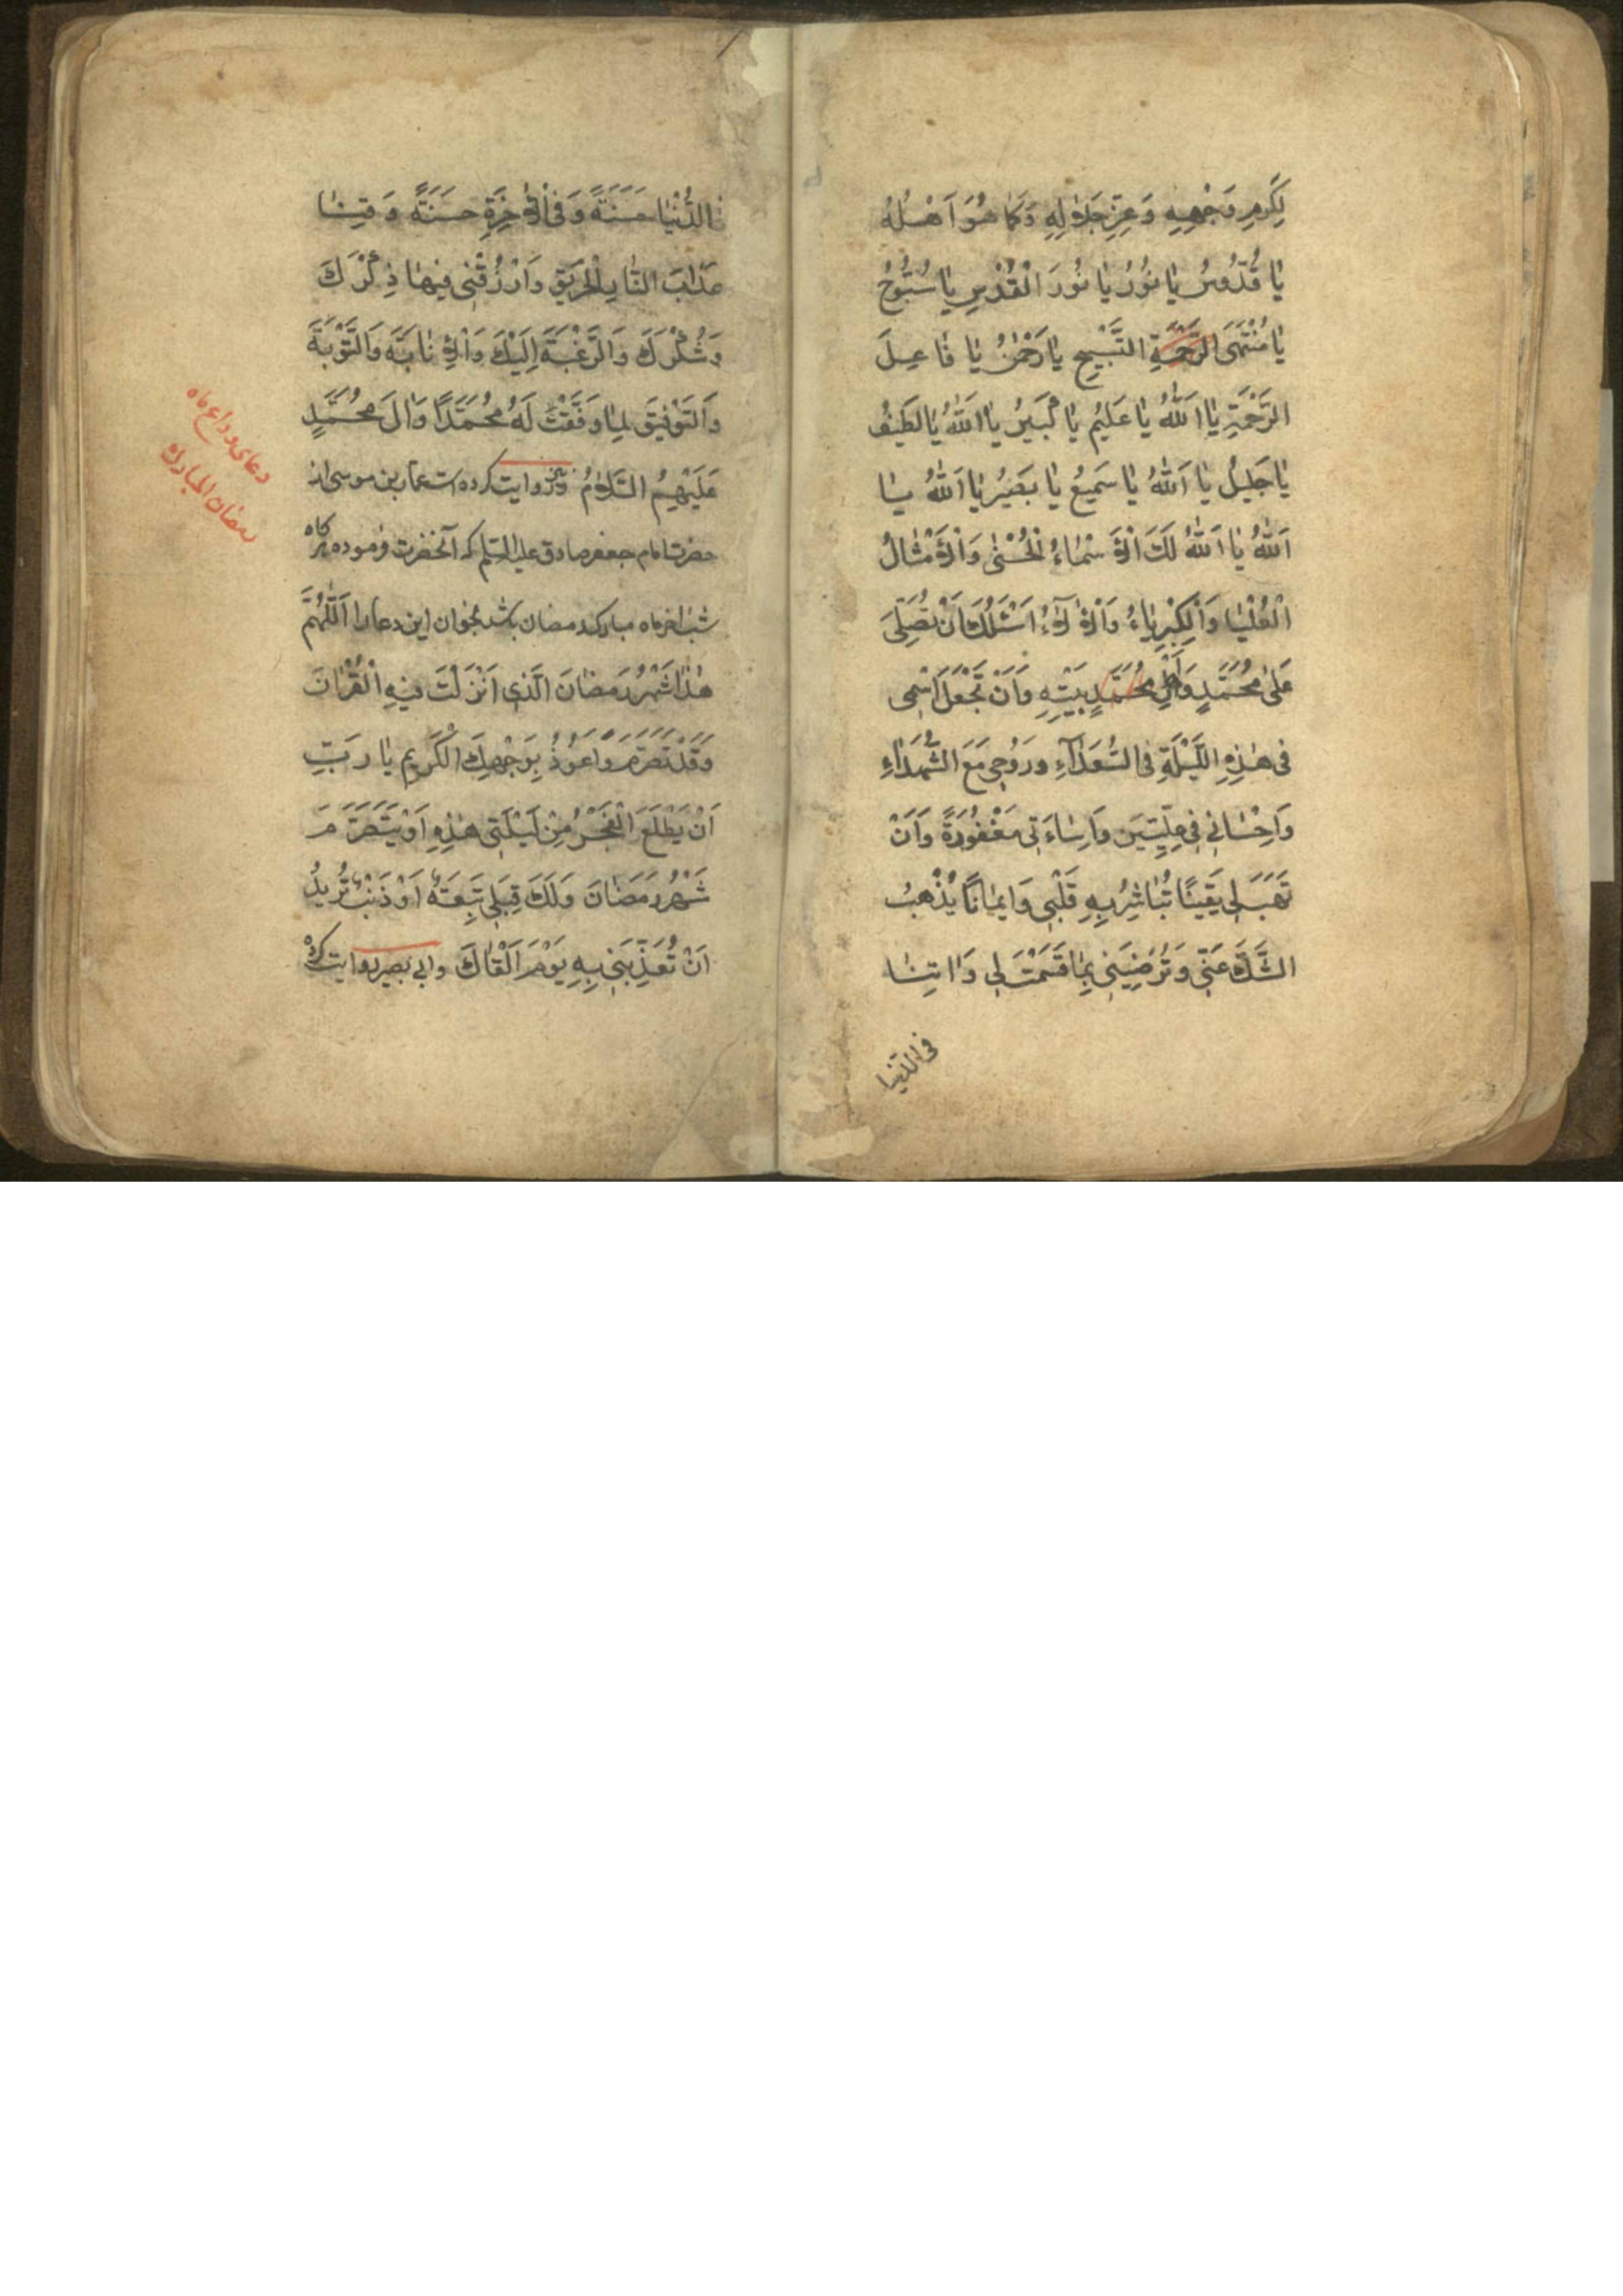 لِكَرَمِ وَجْهِهِ وَعِزِّ جَلَالِهِ وَكَمَا هُوَ اَهْلُهُ
يَا قُدُّوسُ يَا نُورُ يَا نُورَ الْقُدْسِ يَا سُبُّوحُ
يَا مُنْتَهَى الرَّحْمَةِ التَّسْبِيحِ يَا رَحْمٰنُ يَا فَاعِلَ
الرَّحْمَةِ يَا اَللّٰهُ يَا عَلِيمُ يَا كَبِيرُ يَا اَللّٰهُ يَا لَطِيفُ
يَا جَلِيلُ يَا اَللّٰهُ يَا سَمِيعُ يَا بَصِيرُ يَا اَللّٰهُ يَا
اَللّٰهُ يَا اَللّٰهُ لَكَ الْاَسْمَاءُ الْحُسْنٰى وَالْاَمْثَالُ
الْعُلْيَا وَالْكِبْرِيَاءُ وَالْاٰلَاءُ اَسْئَلُكَ اَنْ تُصَلِّىَ
عَلٰى مُحَمَّدٍ وَاَهْلِ مُحَمَّدٍ بَيْتِهِ وَاَنْ تَجْعَلَ اسْمِى
فِى هٰذِهِ اللَّيْلَةِ فِى السُّعَدَاءِ وَرُوحِى مَعَ الشُّهَدَاءِ
وَاِحْسَانِى فِى عِلِّيِّينَ وَاِسَاءَتِى مَغْفُورَةً وَاَنْ
تَهَبَ لِى يَقِينًا تُبَاشِرُ بِهِ قَلْبِى وَاِيمَانًا يُذْهِبُ
الشَّكَّ عَنِّى وَتُرْضِيَنِى بِمَا قَسَمْتَ لِى وَاٰتِنَا
فى الدنيا
فى الدُّنْيَا حَسَنَةً وَفِى الْاٰخِرَةِ حَسَنَةً وَقِنَا
عَذَابَ النَّارِ الْحَرِيقِ وَارْزُقْنِى فِيهَا ذِكْرَكَ
وَشُكْرَكَ وَالرَّغْبَةَ اِلَيْكَ وَالْاِنَابَةَ وَالتَّوْبَةَ
وَالتَّوْفِيقَ لِمَا وَفَّقْتَ لَهُ مُحَمَّدًا وَاٰلَ مُحَمَّدٍ
عَلَيْهِمُ السَّلَامُ ونيز روايت كرده است عمار بن موسى از
حضرت امام جعفر صادق عليه السلم كه آنحضرت فرموده هركاه
شب اخر ماه مبارك رمضان باشد بخوان اين دعا را اَللّٰهُمَّ
هٰذَا شَهْرُ رَمَضَانَ الَّذِى اَنْزَلْتَ فِيهِ الْقُرْاٰنَ
وَقَدْ تَصَرَّمَ وَاَعُوذُ بِوَجْهِكَ الْكَرِيمِ يَا رَبِّ
اَنْ يَطْلَعَ الْفَجْرُ مِنْ لَيْلَتِى هٰذِهِ اَوْ يَتَصَرَّمَ
شَهْرُ رَمَضَانَ وَلَكَ قِبَلِى تَبِعَةٌ اَوْ ذَنْبٌ تُرِيدُ
اَنْ تُعَذِّبَنِى بِهِ يَوْمَ اَلْقَاكَ وابى بصير روايت كرده
دعاى وداع ماه
رمضان المبارك